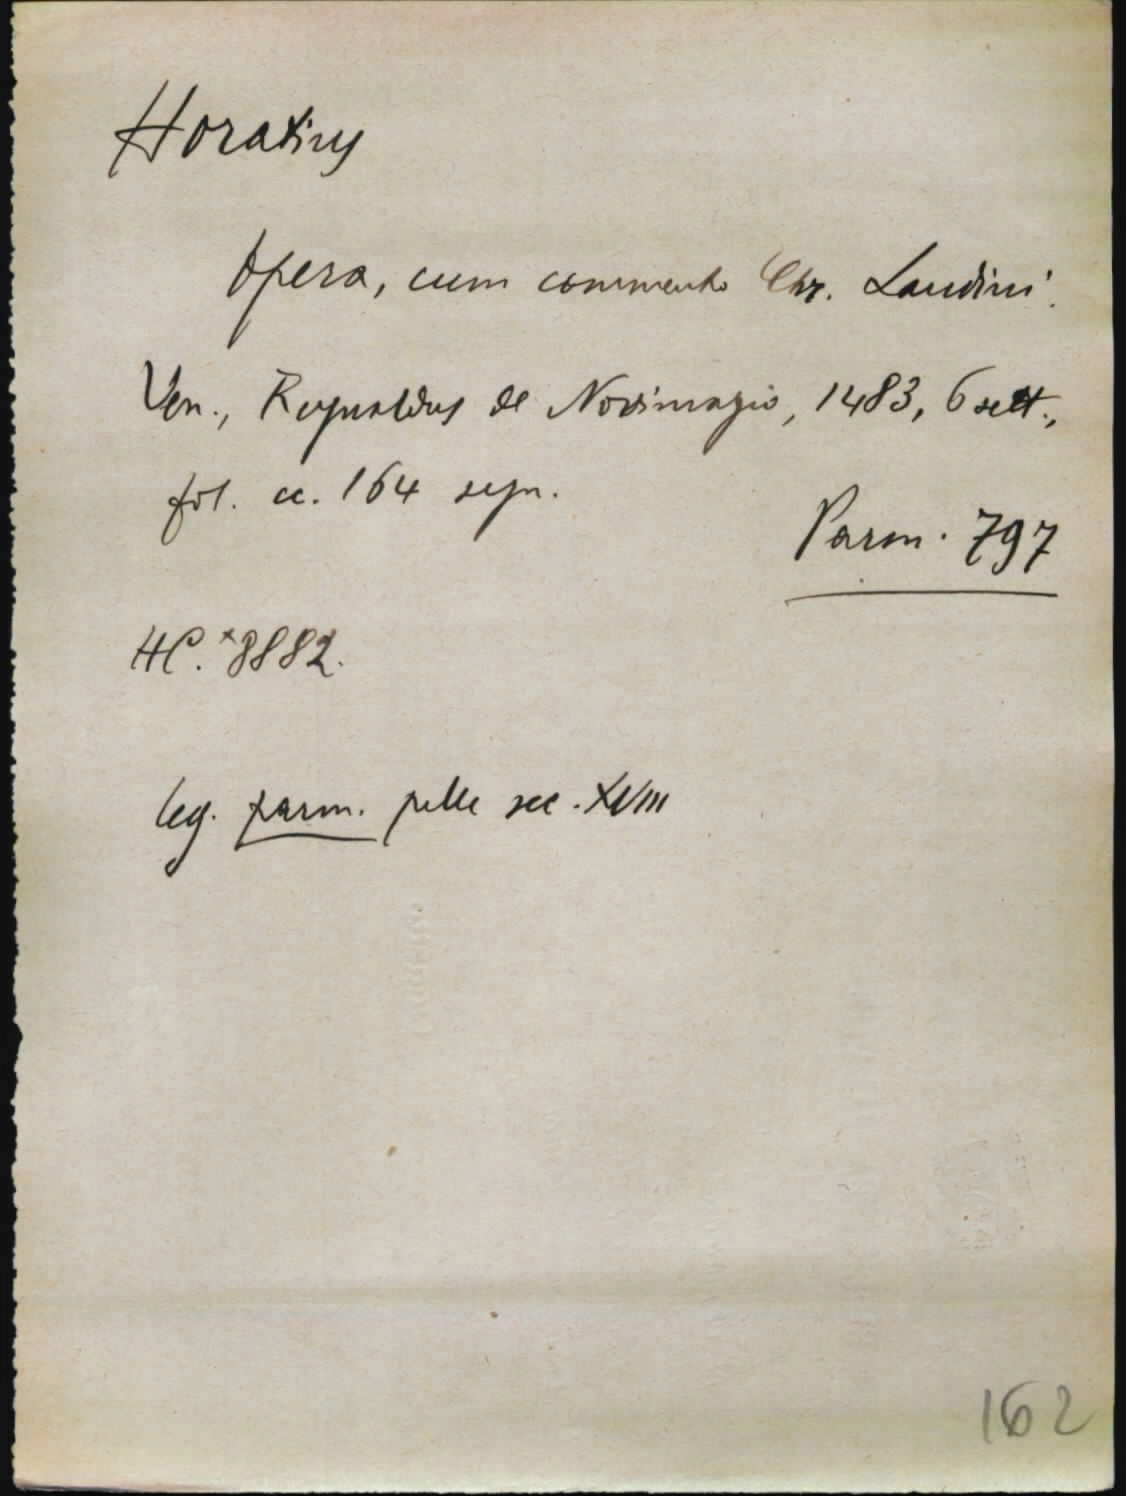 Horatius
Opera, cum commento Chr. Landini.
Ven., Reynaldus de Novimagio, 1483, 6 sett.,
fol. cc. 164 segn.
Parm. 797
HC. *8882.
leg. parm. pelle sec. XVIII
162